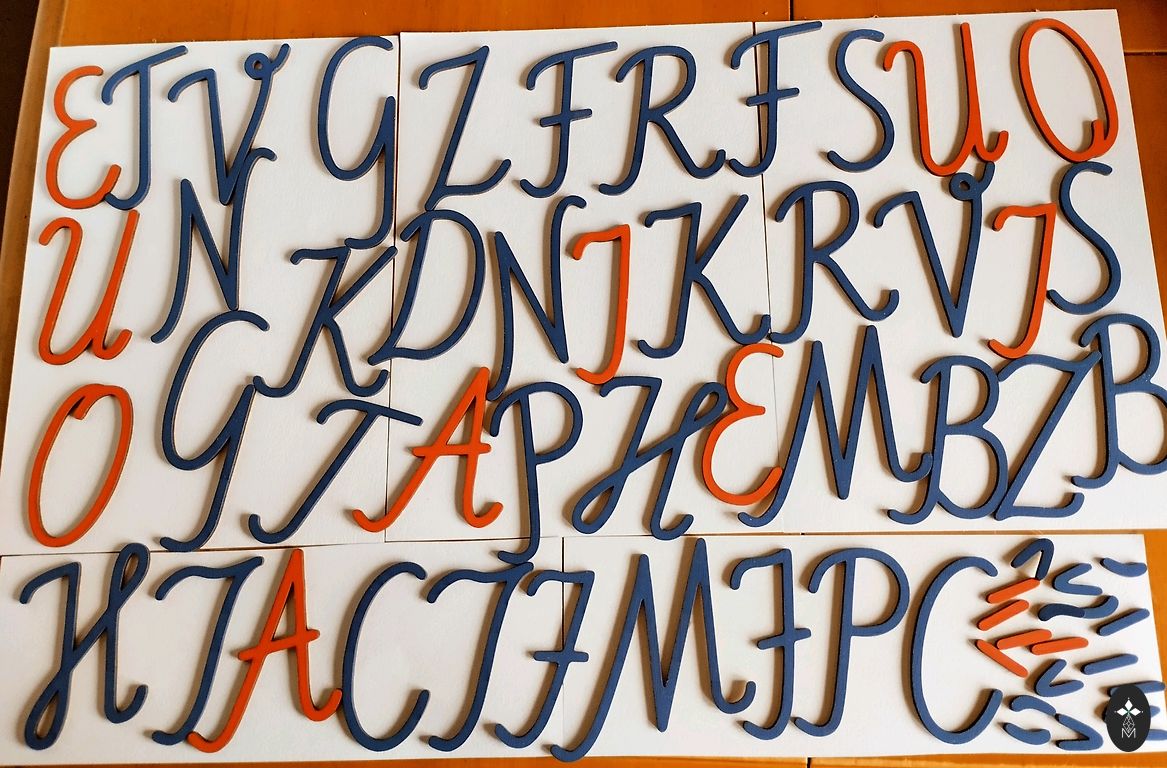 E T V G Z F R F S U O
U N K D N I K R V I S
O G T A P H E M B Z B
H T A C T F M F P C
M